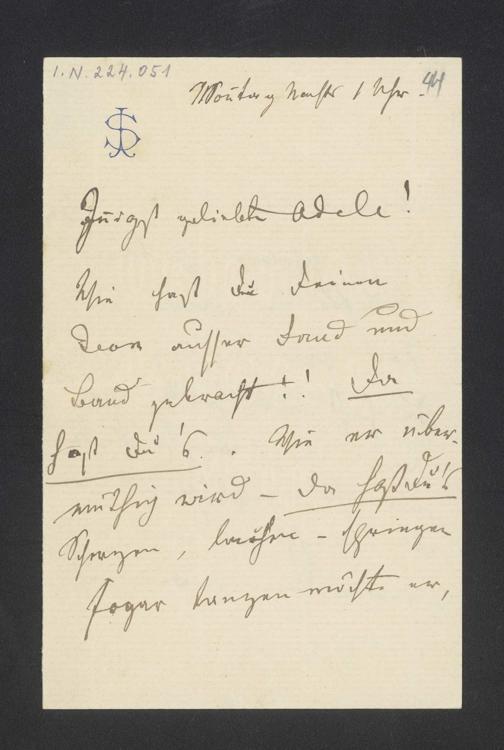 I.N. 224.051
Montag Nachts 1 Uhr. 44
JS
Innigst geliebte Adele!
Wie hast Du Deinen
Jean ausser Rand und
Band gebracht!! Da
hast Du's. Wie er über-
müthig wird – da hast Du's
Scherzen, lachen – springen
sogar tanzen möchte er,